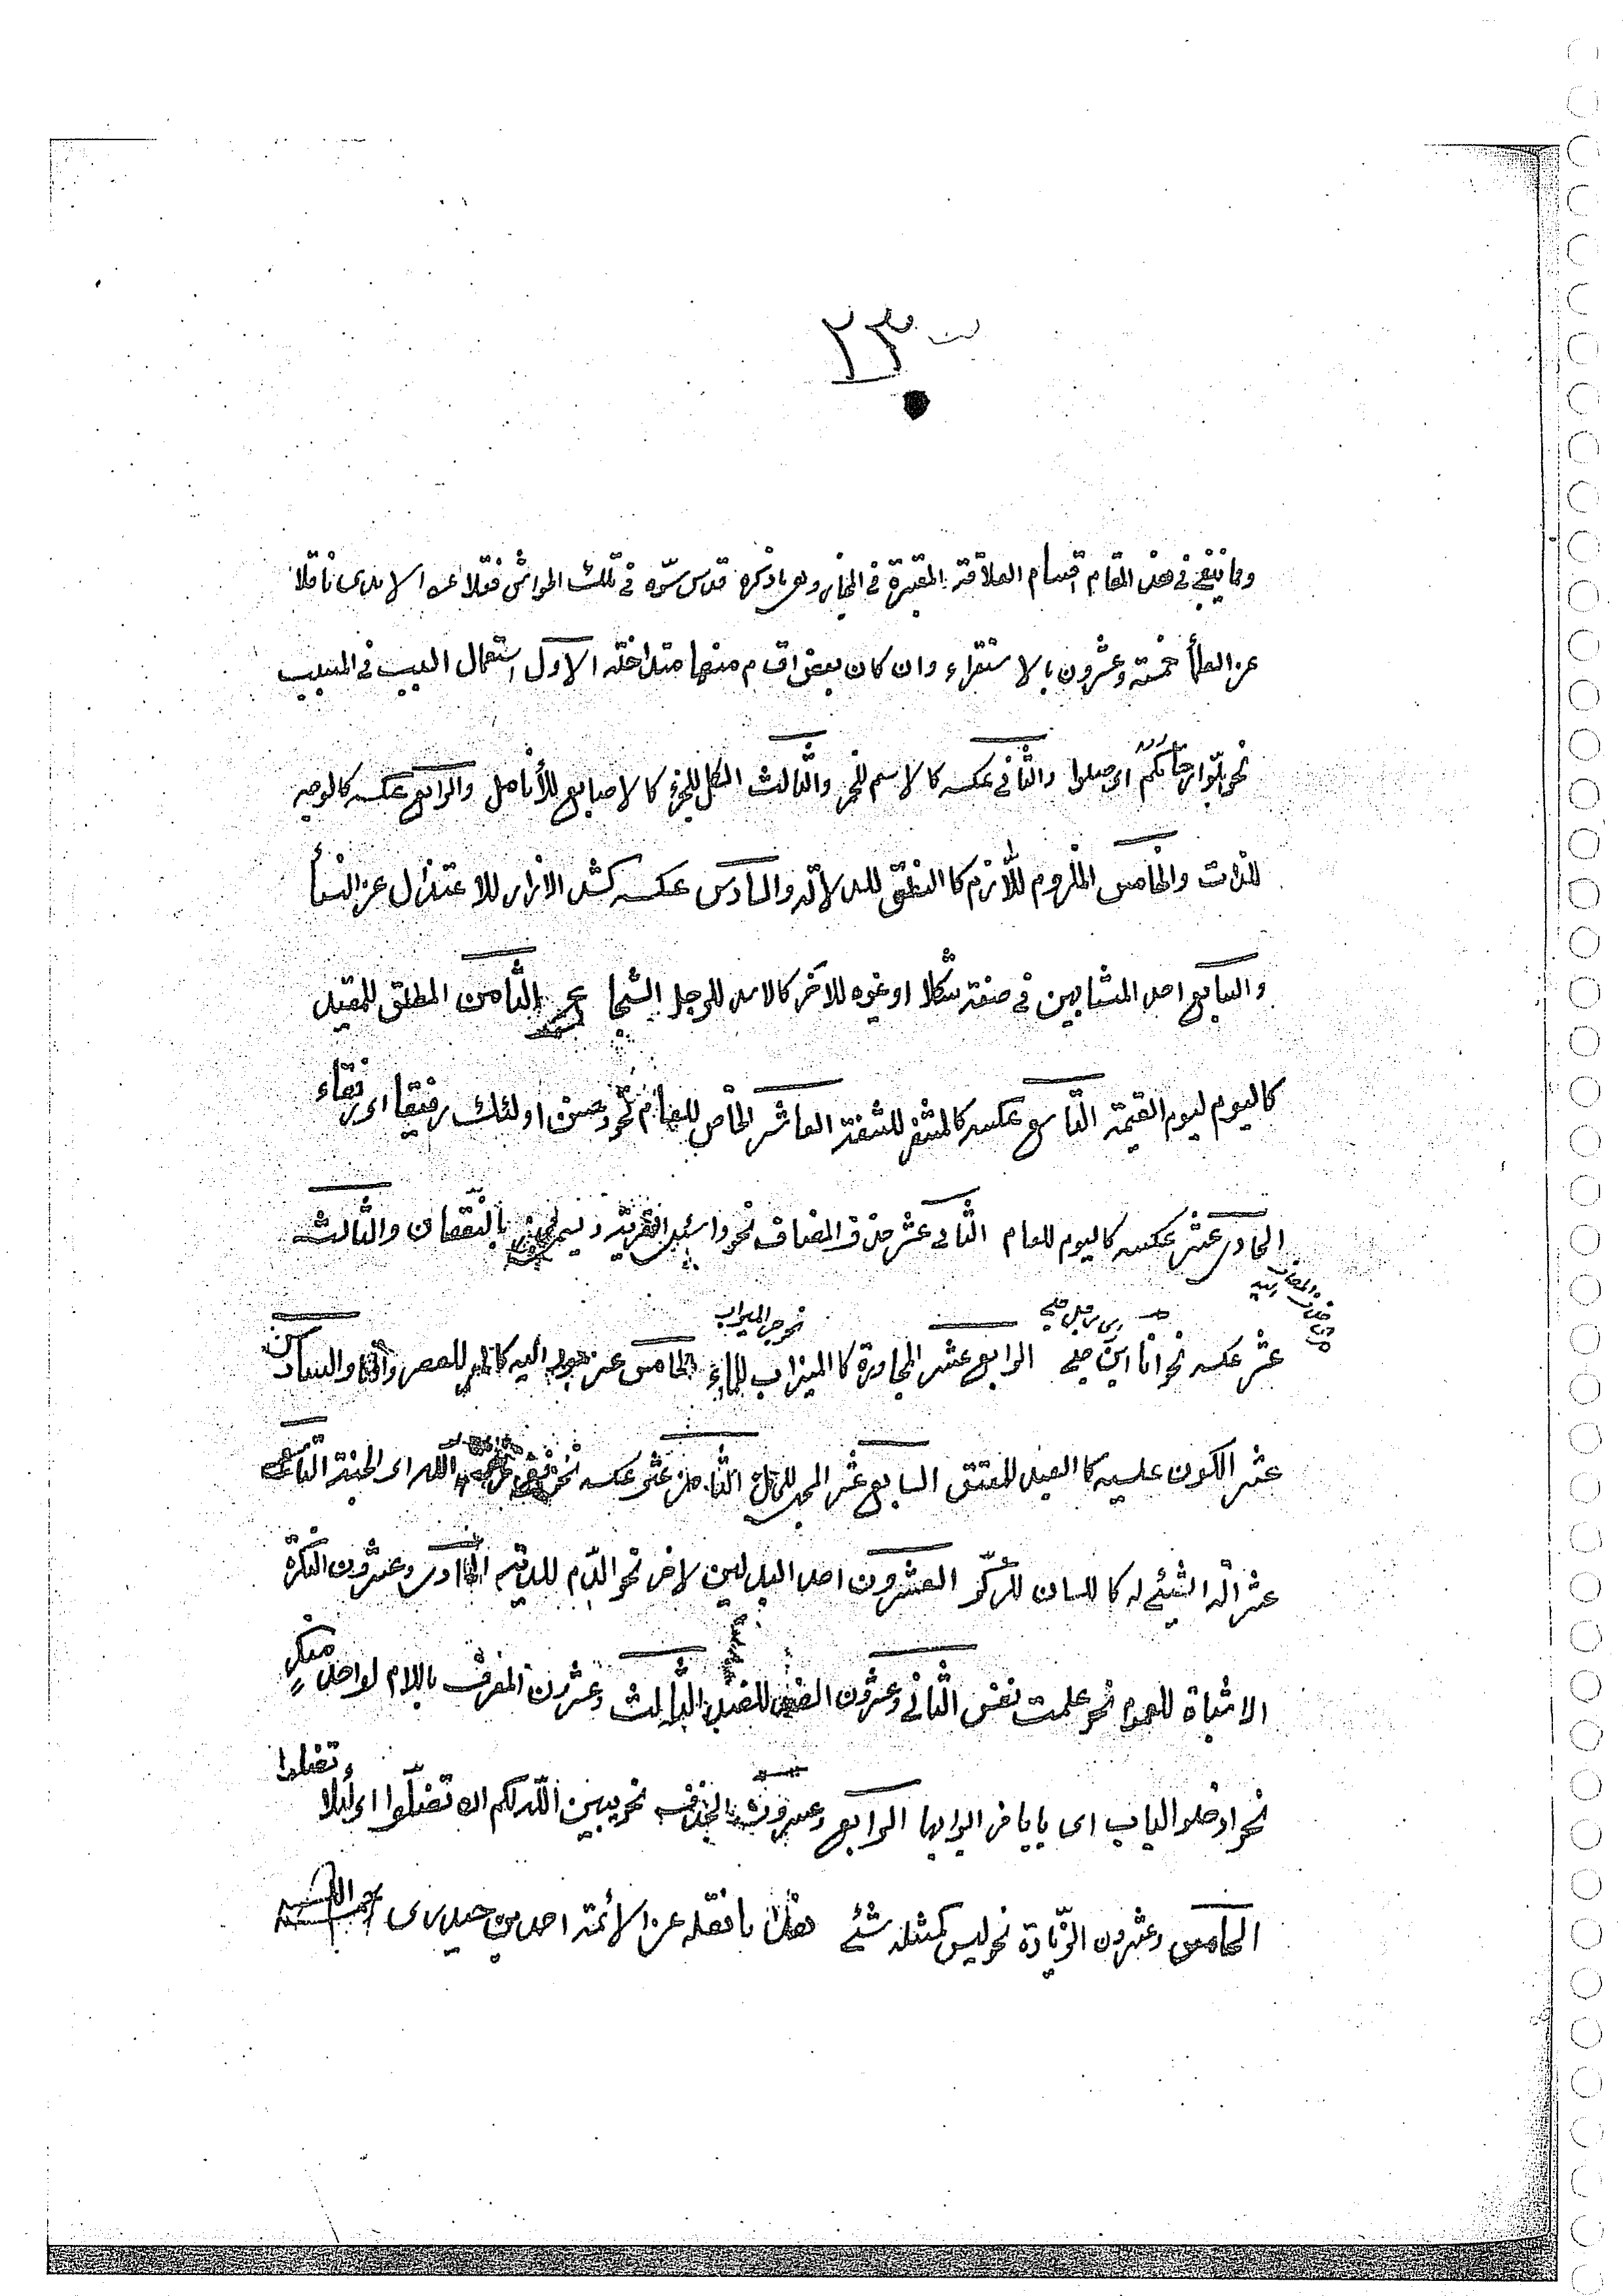 ٢٣
ومما ينبغي في هذا المقام اقسام العلاقة المعتبرة في المجاز وهي ما ذكره قدس سره في تلك الحواشي فقلا عن الامدى ناقلا
عن العلمأ خمسة وعشرون بالاستقراء وان كان بعض اقسام منها متداخلة الاول استعمال السبب في المسبب
نحو بلّوا ارحامكم اى صلوا والثّانى عكسه كالاسم للخمر والثّالث الكل للجزء كالاصابع للأنامل والرابع عكسه كالوجه
للذات والخامس الملزوم للّازم كالنطق للدلالة والسادس عكسه كشد الازار للاعتزال عن النسأ
والسابع احد المتشابهين في صفة شكلا او غيره للاخر كالاسد للرجل الشجاع الثّامن المطلق للمقيد
كاليوم ليوم القيمة التّاسع عكسه كالمشفر للشفة العاشر الخاص للعام نحو وحسن اولئك رفيقا اى رفقاء
الحادى عشر عكسه كاليوم للعام الثّانى عشر حذف المضاف نحو واسئل القرية ويسمى بالنّقصان والثالث
عشر عكسه نحو انا ابن جلى الرابع عشر المجاورة كالميزاب للماء الخامس عشر يؤول اليه كالخمر للعصر والسادس
نحو جرى الميزاب
عشر الكون عليه كالعبد للمعتق السابع عشر المحل للحال الثّامن عشر عكسه نحو ففى رحمة اللّه اى الجنة التّاسع
عشر الة الشيئى له كاللسان للذّكر العشرون احد البدلين لاخر نحو الدّم للدية الحادى وعشرون النكرة
الاثباة للعموم نحو علمت نفس الثّانى وعشرون الضد للضد الثّالث وعشرون المعرف باللام لواحد منكر
نحو ادخلوا الباب اى بابا من ابوابها الرابع وعشرون الحذف نحو يبين اللّه لكم ان تضلّوا اى لئلا تضلوا
الخامس وعشرون الزّيادة نحو ليس كمثله شئى هذا ما نقله عن الائمة احمد بن حيدرى